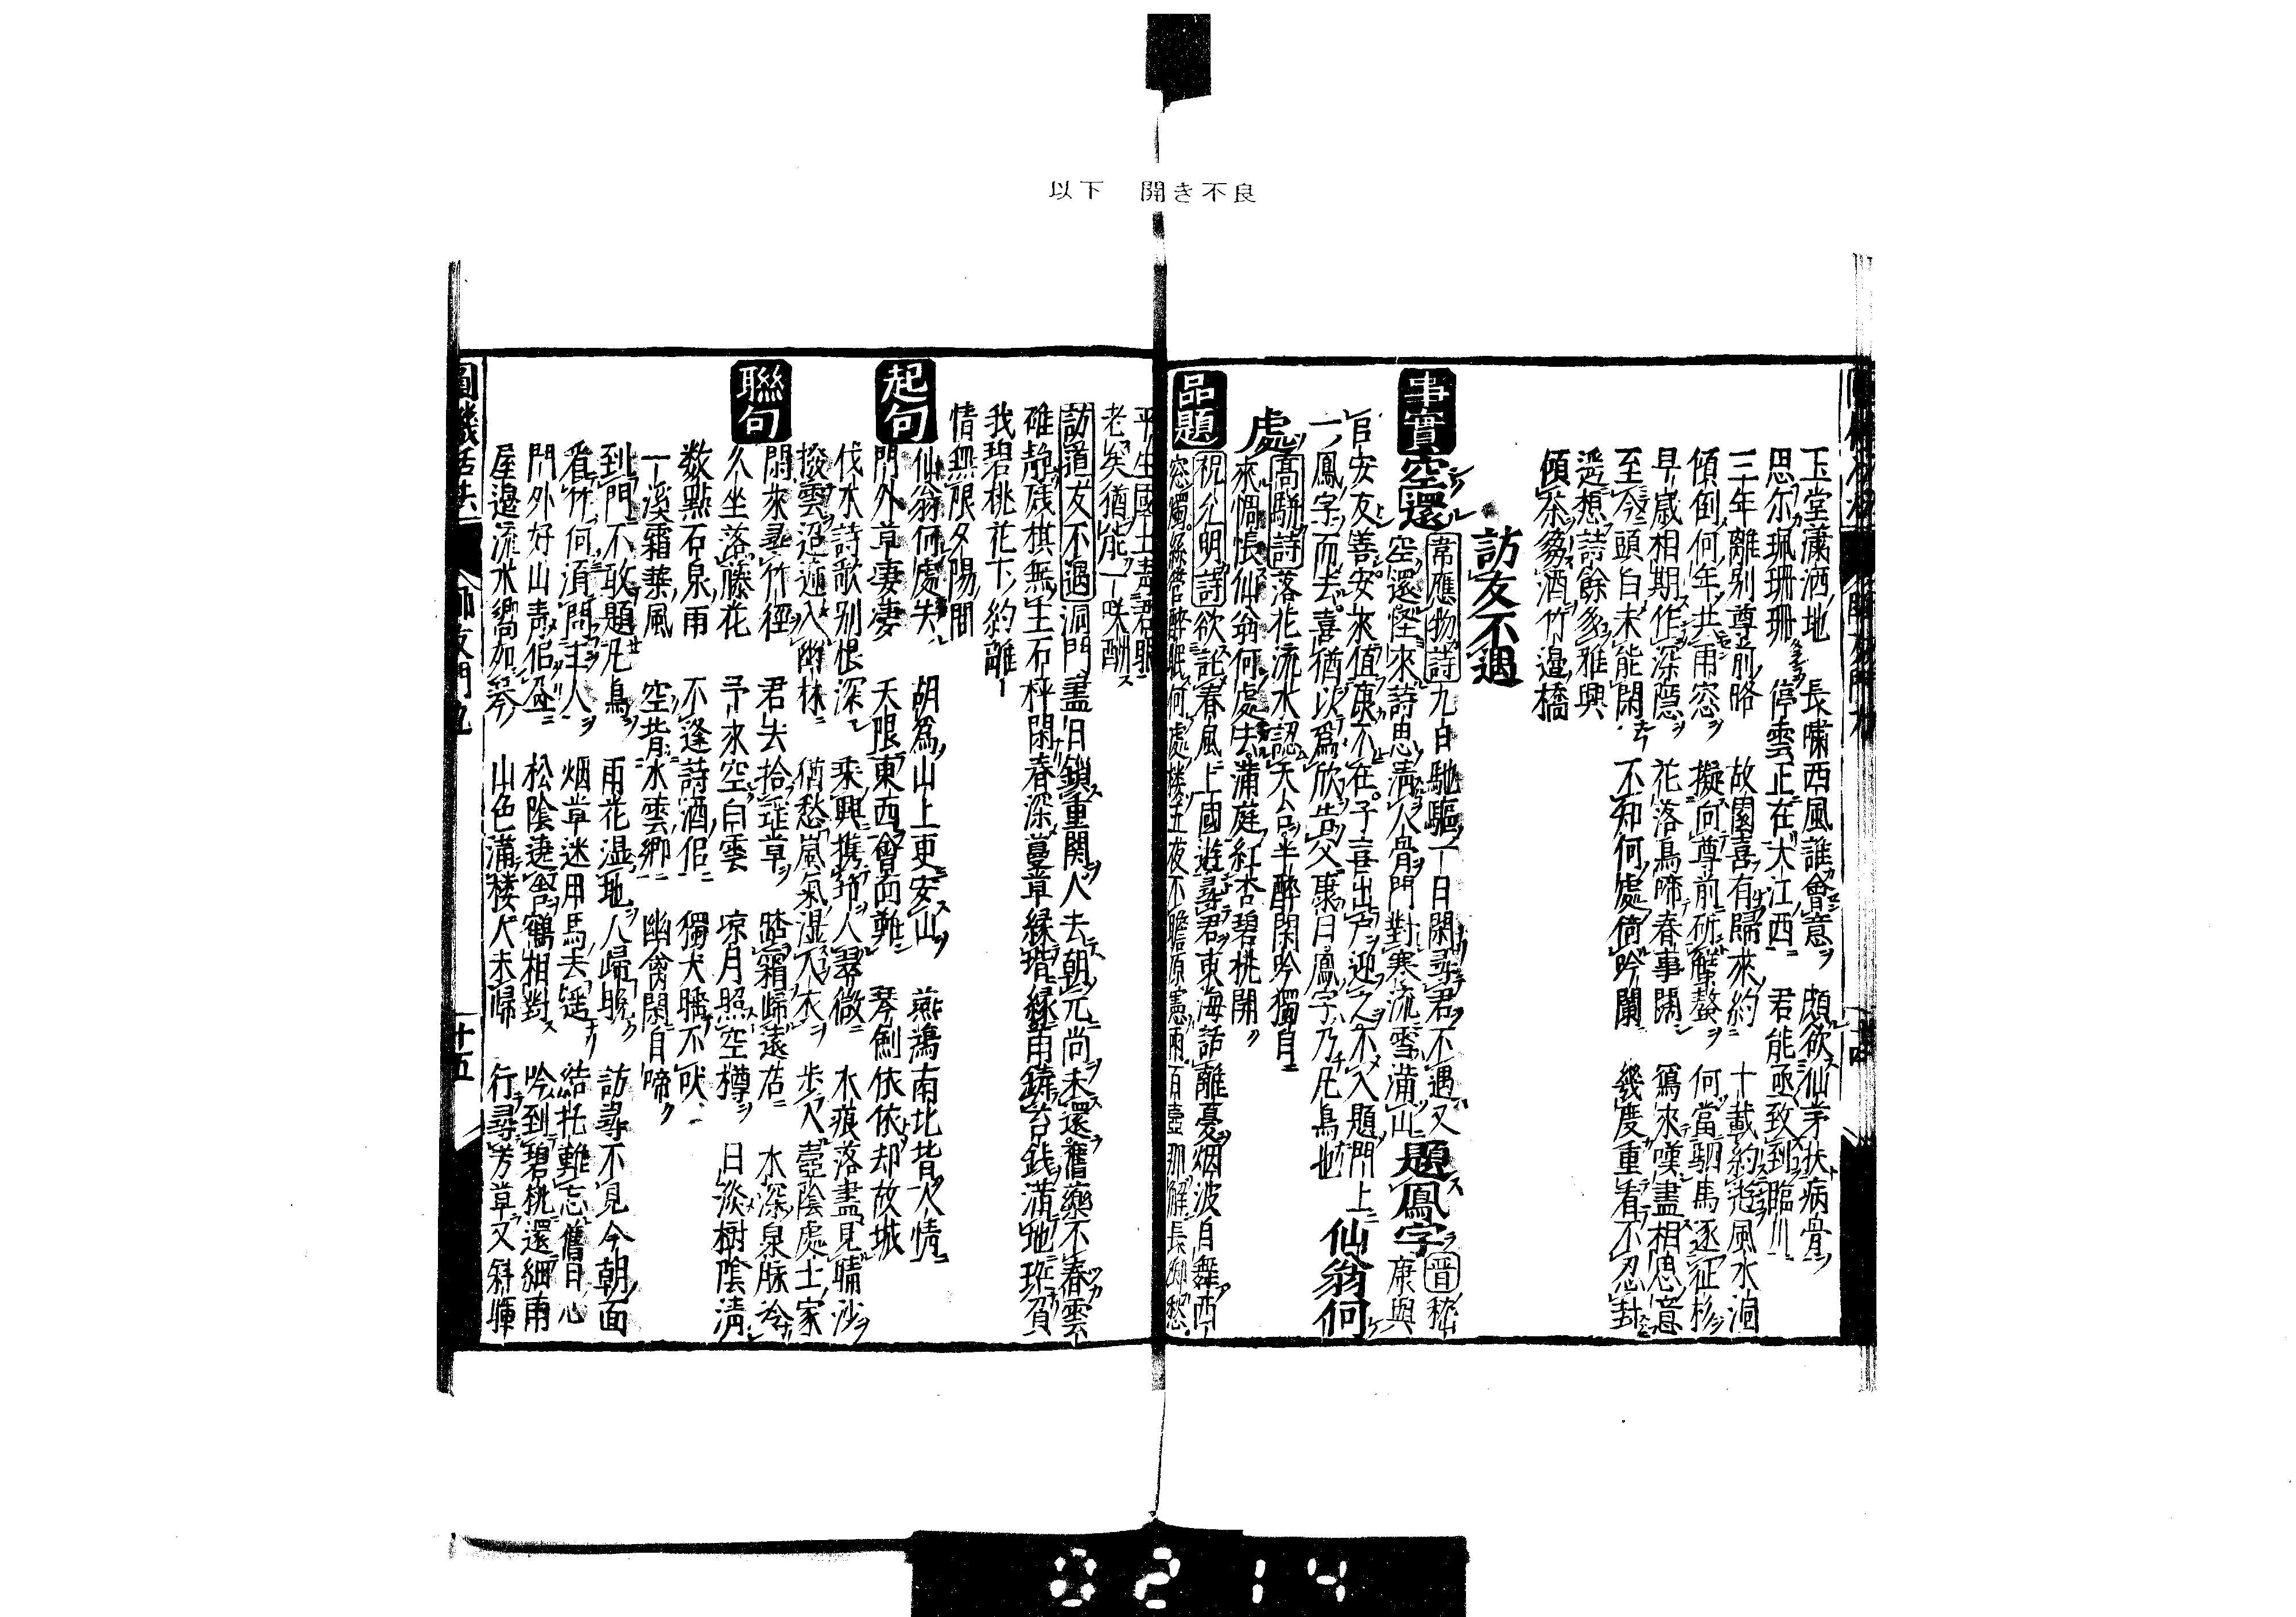 以下 開き不良
玉堂瀟洒地 長嘯西風誰會意 頗欲仙茅扶病骨
思尔珮珊珊 停雲正在大江西 君能亟致到臨川
三年離别尊前略 故園喜有歸來約 十載約遊風水洞
傾倒何年共雨窓 擬向尊前斫蟹螯 何當駟馬逐征杉
早歳相期作深隠 花落鳥啼春事闌 寫來嘆盡相思意
至今頭白未能閑 不知何處倚吟闌 幾度重看不忍封
遥想詩餘多雅興
傾茶蒭酒竹邉橋
訪友不遇
事實 空還 常應物詩九日馳驅一日閑尋君不遇又
空還怪來詩思清人骨門對寒流雪滿山 題鳳字 晋嵆康與
吕安友善安來值康不在子喜出户迎之不入題門上
一鳳字而去喜猶以爲欣告父康曰鳳字乃凡鳥也 仙翁何
處 高駢詩落花流水認天台半醉閑吟獨自
來惆悵仙翁何處去滿庭紅杏碧桃開
品題 祝允明詩欲訖春風上國遊尋君東海話離憂烟波自舞西
窓燭絲管醉眠何處楼五夜不瞻原憲雨百壺那解長卿愁
平生國士
老矣猶能一咲酬
訪道友不遇洞門盡日鎖重関人去朝元尚未還舊藥不舂雲
碓靜殘棋無主石枰閑春深蔓草緑堦緑雨鋳苔銭滿地斑負
我碧桃花下約離
情無限夕陽間
起句 仙翁何處失 胡爲山上更安山 燕鴻南北皆人情
門外草妻妻 天限東西會面難 琴劍依依却故城
伐木詩歌别恨深 乗興携筇人翠微 水痕落盡見晴沙
撥雲迢遞入幽林 猶愁嵐氣湿人衣 歩入壺陰處士家
聯句 閑來尋竹徑 君去拾瑤草 踏霜歸遠店 水深泉脉冷
久坐落藤花 予來空白雲 凉月照空樽 日淡樹陰清
数點石泉雨 不逢詩酒侣 獨犬睡不吠
一溪霜葉風 空背水雲郷 幽禽閑自啼
到門不敢題凡鳥 雨花湿地人歸晩 訪尋不見今朝面
看竹何湏問主人 烟草迷用馬去遥 結托難忘舊日心
門外好山青侣㘴 松陰連舎鶴相對 吟到碧桃還細雨
屋邉流水響如琴 山色滿楼人未歸 行尋芳草又斜暉
圓機活法 師友門九 十五
0214